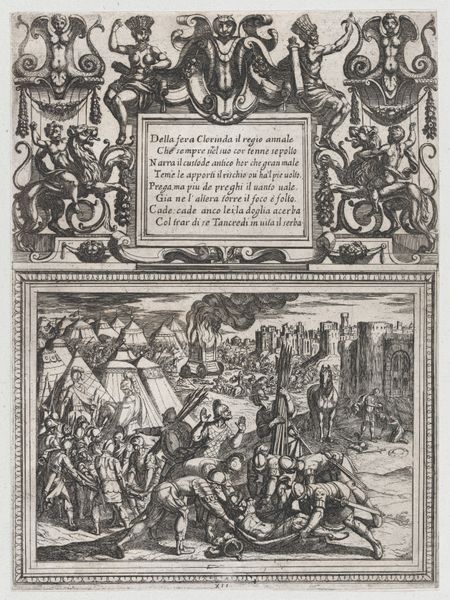 Della fera Clorinda il regio annale
Che sempre nel suo cor tenne sepolto
Narra il custode antico hor che gran male
Teme le apporti il rischio ou ha'l pie uolto.
Prega, ma piu de preghi il uanto uale.
Gia ne l'altera torre il foco è folto.
Cade, cade anco lei, la doglia acerba
Col trar di se Tancredi in uita il serba
XII